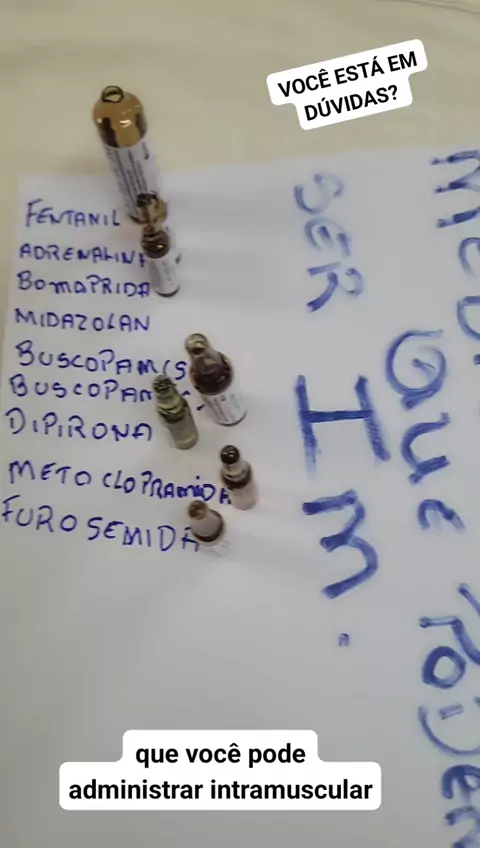 VOCÊ ESTÁ EM
DÚVIDAS?
FENTANIL
ADRENALINA
BOMAPRIDA
MIDAZOLAN
BUSCOPAM
BUSCOPAM
DIPIRONA
METOCLOPRAMIDA
FUROSEMIDA
QUE PODEM
SER
IM.
que você pode
administrar intramuscular